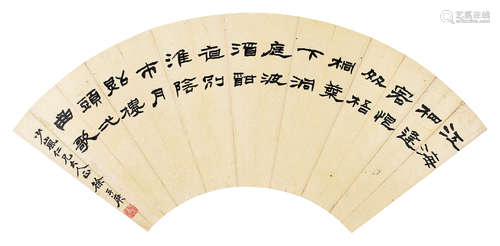 江海
相逢
客恨
多梧
桐葉
下洞
庭波
酒酣
夜別
淮陰
市月
照樓
頭弌
曲歌
少嵐仁兄大人正 徐三庚